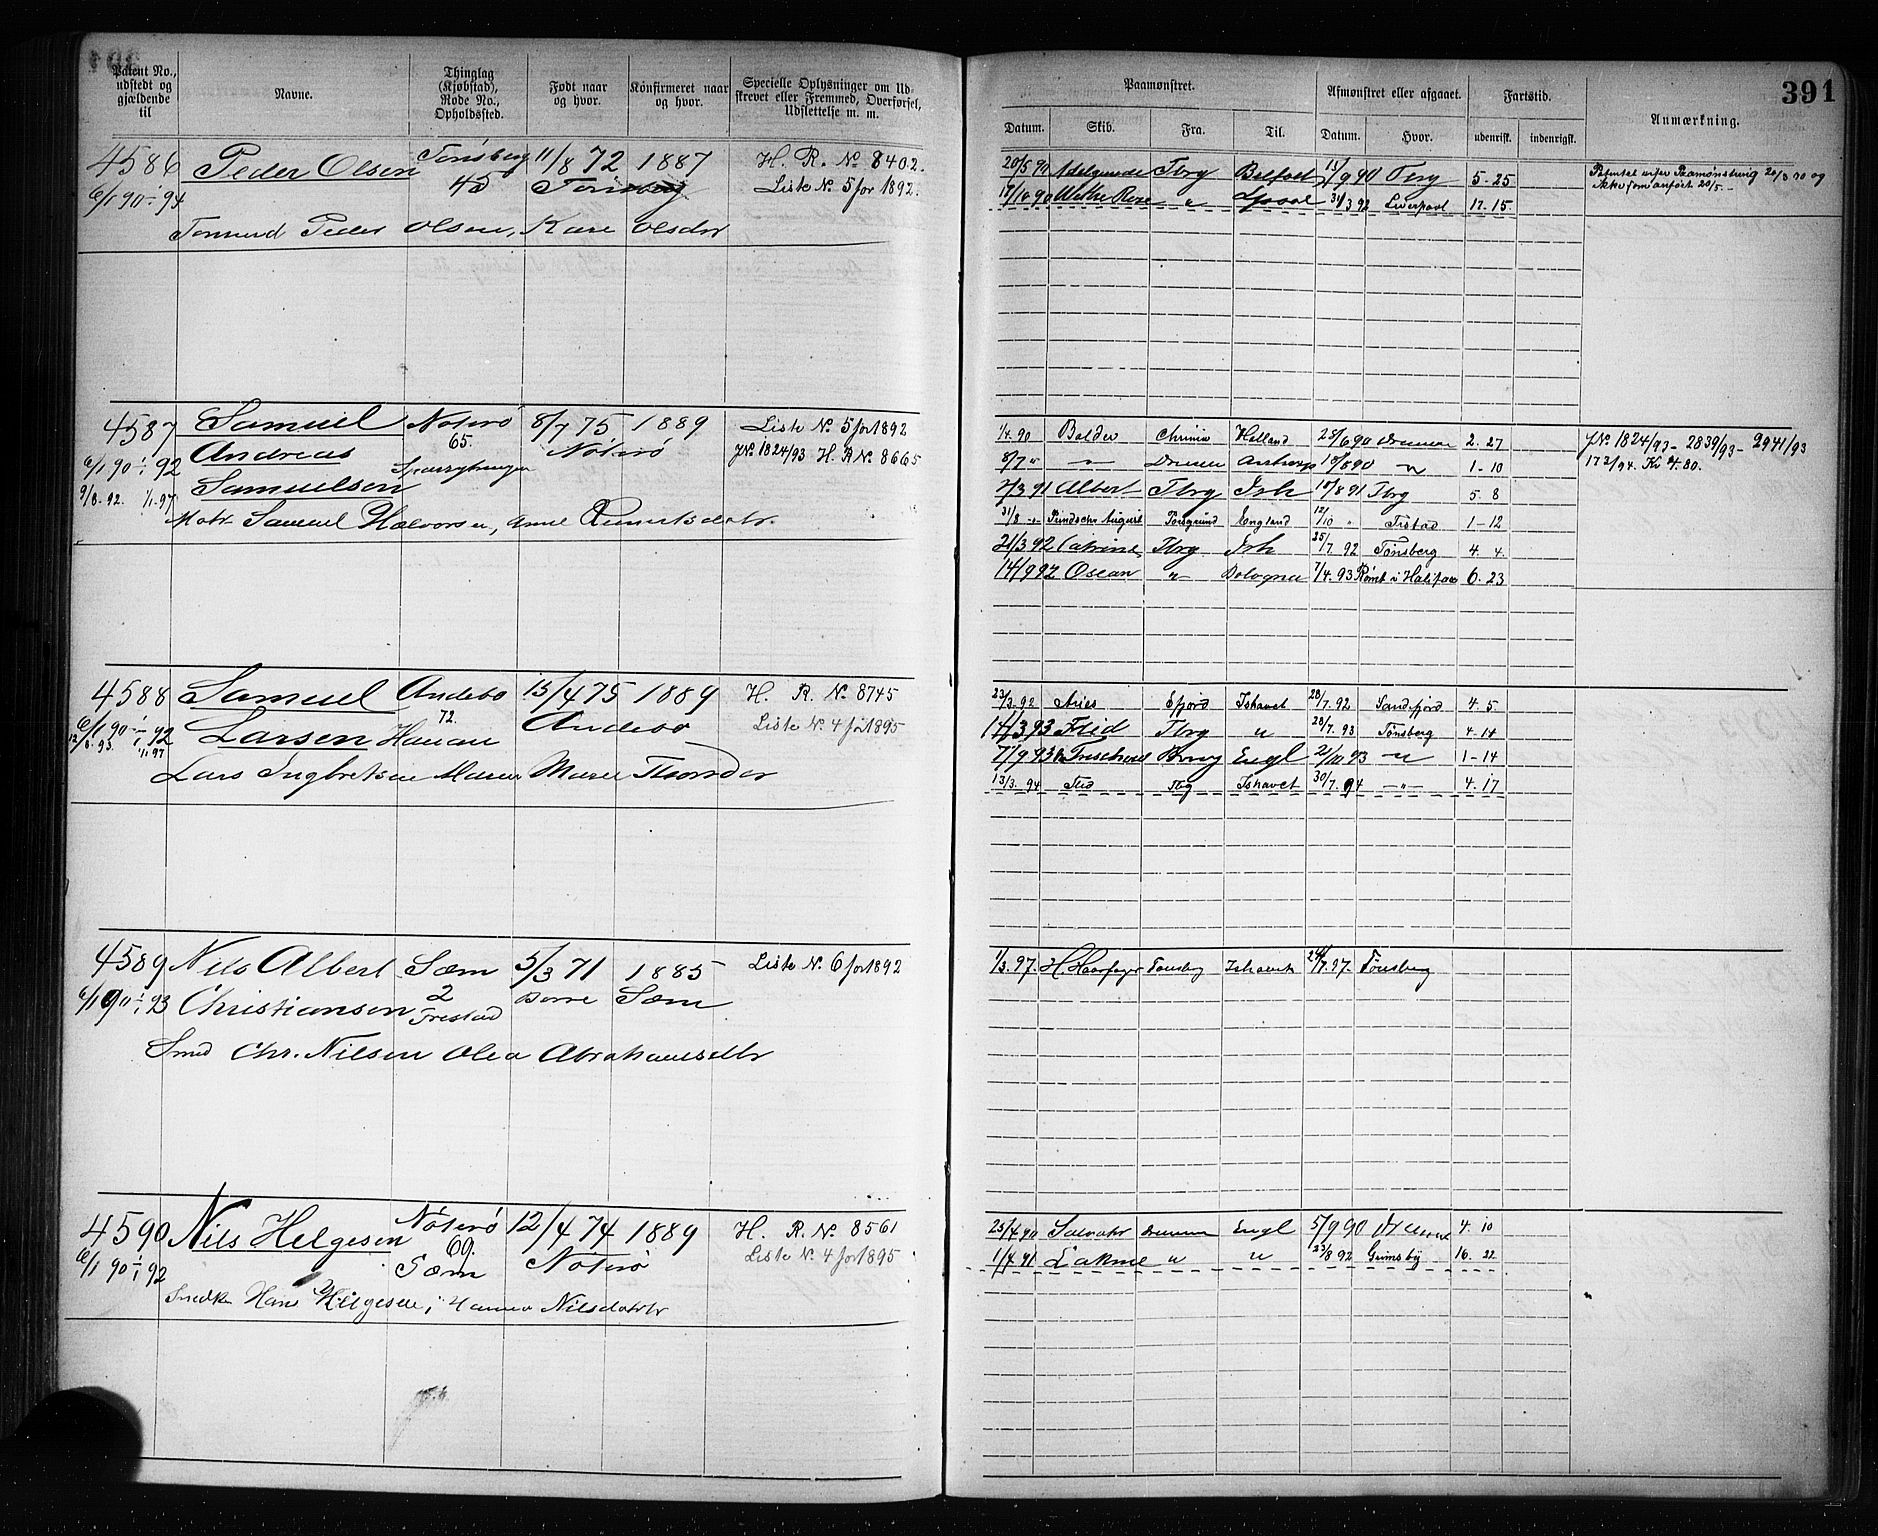 391
Patent No., udstedt og gjældende til
Navne.
Thinglag (Kjøbstad), Rode No., Opholdssted.
Født naar og hvor.
Konfirmeret naar og hvor.
Specielle Oplysninger om Udskrevet eller Fremmed, Overførsel, Udslettelse m. m.
Paamønstret.
Afmønstret eller afgaaet.
Fartstid.
Anmærkning.
Datum. Skib. Fra. Til. Datum. Hvor. udenrigsk. indenrigsk.
4586 Peder Olsen Tønsberg 11/8 72 1887 H. R. No 8402.
6/1 90 - 1/1 94 45 Tønsberg Liste No. 5 for 1892.
Peder Olsen, Kare Olsdtr
20/5 90 Tbrg Belfast 9 90 Tbrg 5-25
90 " 31/3 92 Liverpool 17.15
4587 Samuel Nøterø 8/7 75 1889 Liste No. 5 for 1892
Andreas 65. Nøterø JNo 1824/93 H. R No. 8665
6/1 90 - 1/1 92 Samuelson
9/8. 92. 1/1. 97
Matr. Samuel Halvorsen, Anne
1/4. 90 Balder Holland 25/6 90 Drammen 2. 27
8/7 " " Drammen 18/8 90 " 1-10
2/3 91 Albert Tbrg Ish 10/8 91 Tbrg 5. 8
31/8 " August Porsgrund England 12/10 " 1-12
21/3 92 Catrine Tbrg Ish 25/7. 92 Tønsberg 4. 4.
14/9 92 Ocean " Bologna 7/4. 93 Rømt i Halifax 6. 23
JNo 1824/93 - 2839/93 - 2941/93
173/94. Kr 4.80.
4588 Samuel Andebo 15/4 75 1889 H. R. No. 8745
6/1 90 - 1/1 92 Larsen 72. Andebo Liste No. 4 for 1895
12/8. 93. 1/1. 97
Lars Ingbretsen Maren Marie
23/3. 92 Aries Sfjord Ishavet 28/7. 92 Sandefjord 4. 5
14/3 93 Frid Tbrg " 28/7. 93 Tønsberg 4-14
7/9 93 Engl 21/10 93 " 1-14
13/3. 94 Tbg Ishavet 30/7. 94 " 4. 17
4589 Nils Albert Sæm 5/3 71 1885 Liste No. 6 for 1892
6/1 90 - 1/1 93 Christiansen 2 Borre Sæm
Smed Chr. Nilsen Olea Abrahamsdtr
1/3. 97. H. Haarfager Tønsberg Ishavet 24/7. 97. Tønsberg
4590 Nils Helgesen Nøterø 12/4 74 1889 H. R. No. 8561
6/1 90 - 1/1 92 69. Sæm Nøterø Liste No. 4 for 1895
Snedker Hans Helgesen, Hanna Nilsdatter
23/4 90 Salvator Drammen Engl 5/9 90 4. 10
1/4 91 Lakme " " 23/8 92 Grimsby 16. 22